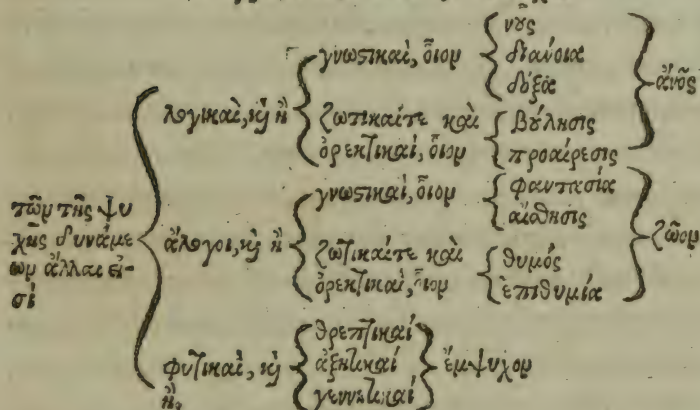 τῶν τῆς ψυ
χῆς δυνάμε
ων ἄλλαι εἰ-
σί
λογικαὶ, κỳ ἢ
γνωστικαὶ, οἷον
νοῦς
διάνοια
δόξα
ζωτικαίτε καὶ
ὀρεκτικαὶ, οἷον
βούλησις
προαίρεσις
ἄνος
ἄλογοι, κỳ ἢ
γνωστικαὶ, οἷον
φαντασία
αἴσθησις
ζωτικαίτε καὶ
ὀρεκτικαὶ, οἷον
θυμός
ἐπιθυμία
ζῶον
φυτικαὶ, κỳ
ἢ,
θρεπτικαί
ἀξητικαί
γεννητικαί
ἔμψυχον